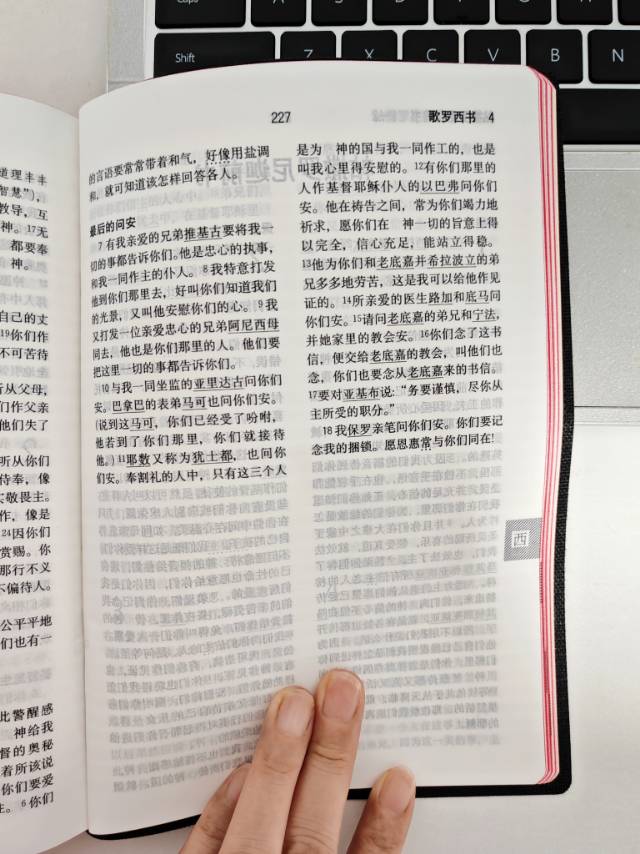 Shift
Z
X
C
V
B
N
227
歌罗西书 4
的言语要常常带着和气，好像用盐调
和，就可知道该怎样回答各人。
最后的问安
7 有我亲爱的兄弟推基古要将我一
切的事都告诉你们。他是忠心的执事，
和我一同作主的仆人。8我特意打发
他到你们那里去，好叫你们知道我们
的光景，又叫他安慰你们的心。9我
又打发一位亲爱忠心的兄弟阿尼西母
同去，他也是你们那里的人。他们要
把这里一切的事都告诉你们。
10与我一同坐监的亚里达古问你们
安。巴拿巴的表弟马可也问你们安。
（说到这马可，你们已经受了吩咐，
他若到了你们那里，你们就接待
他。）11耶数又称为犹士都，也问你
们安。奉割礼的人中，只有这三个人
是为 神的国与我一同作工的，也是
叫我心里得安慰的。12有你们那里的
人作基督耶稣仆人的以巴弗问你们
安。他在祷告之间，常为你们竭力地
祈求，愿你们在 神一切的旨意上得
以完全，信心充足，能站立得稳。
13他为你们和老底嘉并希拉波立的弟
兄多多地劳苦，这是我可以给他作见
证的。14所亲爱的医生路加和底马问
你们安。15请问老底嘉的弟兄和宁法，
并她家里的教会安。16你们念了这书
信，便交给老底嘉的教会，叫他们也
念，你们也要念从老底嘉来的书信。
17要对亚基布说：“务要谨慎，尽你从
主所受的职分。”
18 我保罗亲笔问你们安。你们要记
念我的捆锁。愿恩惠常与你们同在！
西
道理丰丰
智慧”），
教导，互
神。17无
都要奉
神。
自己的丈
19你们作
不可苦待
听从父母，
们作父亲
他们失了
听从你们
侍奉，像
实敬畏主。
作，像是
24因你们
赏赐。你
那行不义
不偏待人。
公公平平地
们也有一
此警醒感
神给我
督的奥秘
着所该说
你们要爱
主。6你们